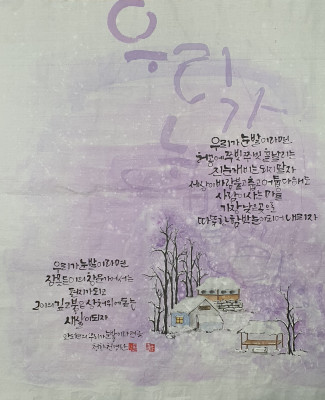 우리
가
눈
우리가 눈발이라면,
허공에 쭈빗쭈빗 흩날리는
진눈깨비는 되지말자
세상이 바람불고 춥고 어둡다해도
사람이 사는 마을
가장 낮은곳으로
따뜻한 함박눈이 되어 내리자
우리가 눈발이라면
잠못든 이의 창문가에서는
편지가 되고
그이의 깊고 붉은 상처위에 돋는
새살이 되자
안도현의 우리가 눈발이라면